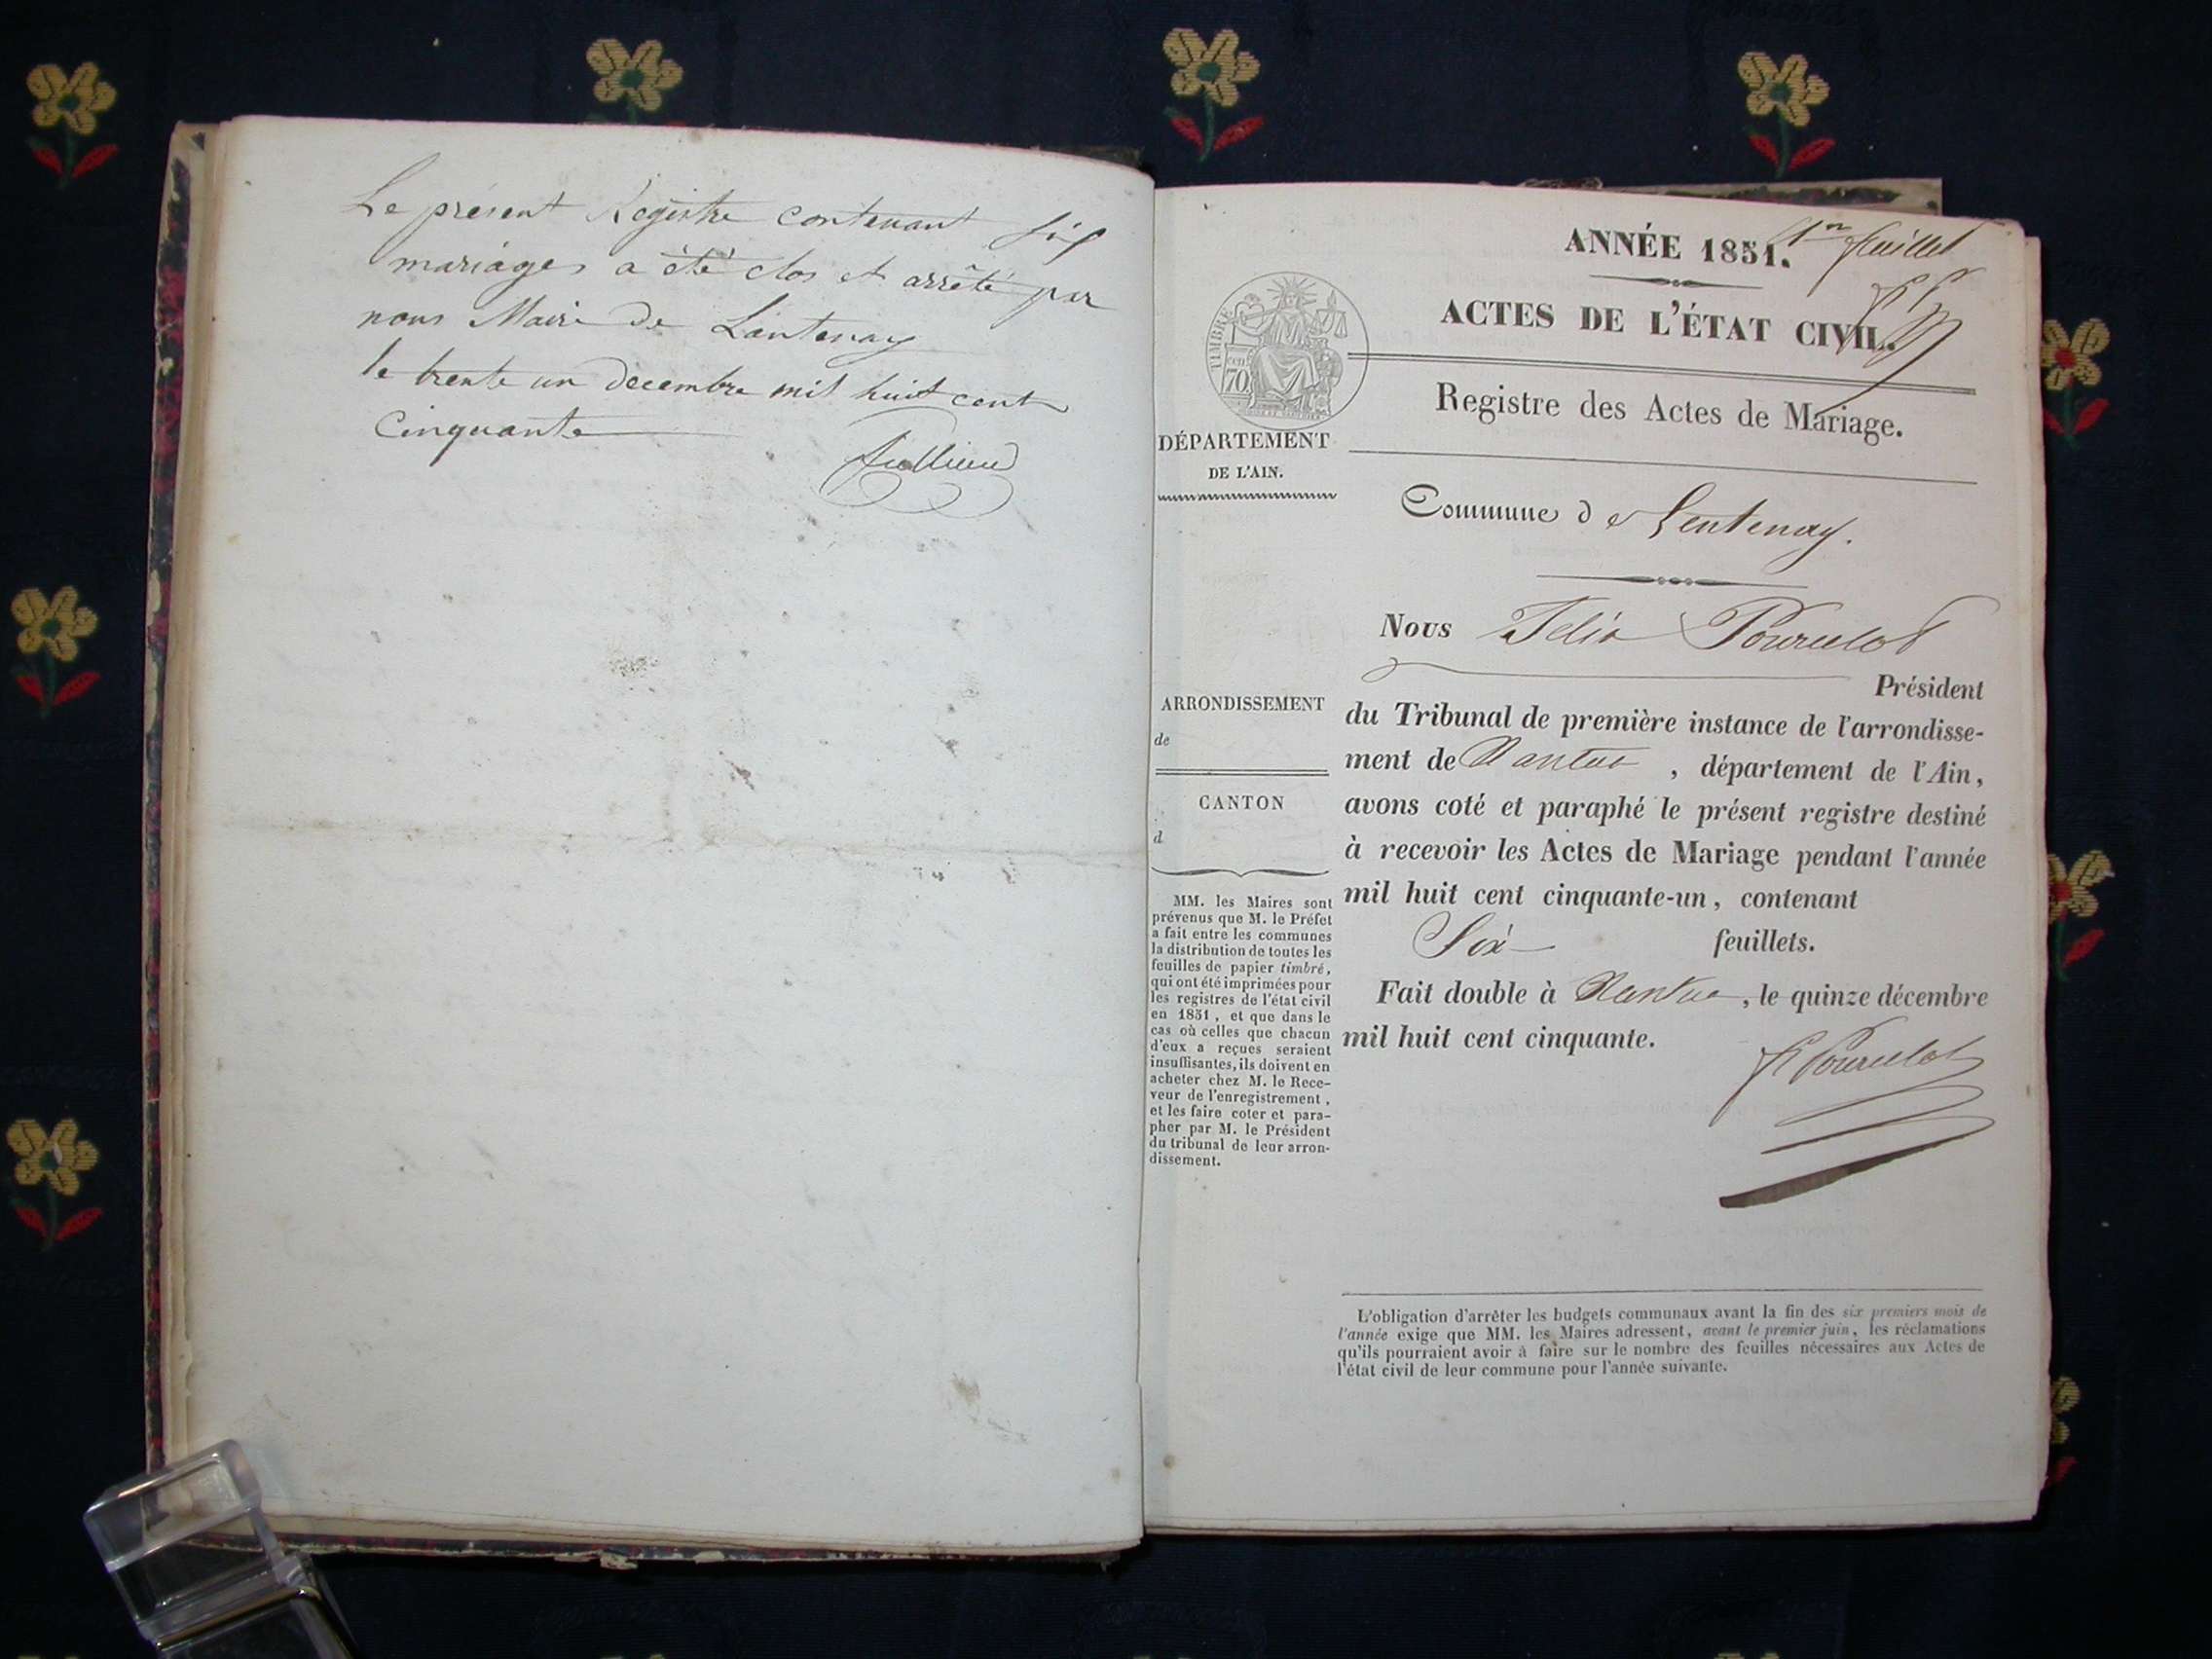 Le présent Registre contenant six
mariages a été clos et arrêté par
nous Maire de Lantenay
le trente un decembre mil huit cent
Cinquante
Jullien
ANNÉE 1851.
1er feuillet
ACTES DE L'ÉTAT CIVIL.
Registre des Actes de Mariage.
TIMBRE
cen
70
DÉPARTEMENT
DE L'AIN.
Commune de Lentenay.
Nous Félix Pourcelot
Président
du Tribunal de première instance de l'arrondisse-
ment de Nantua, département de l'Ain,
avons coté et paraphé le présent registre destiné
à recevoir les Actes de Mariage pendant l'année
mil huit cent cinquante-un, contenant
Six feuillets.
Fait double à Nantua, le quinze décembre
mil huit cent cinquante.
F Pourcelot
ARRONDISSEMENT
de
CANTON
d
MM. les Maires sont
prévenus que M. le Préfet
a fait entre les communes
la distribution de toutes les
feuilles de papier timbré,
qui ont été imprimées pour
les registres de l'état civil
en 1851, et que dans le
cas où celles que chacun
d'eux a reçues seraient
insuffisantes, ils doivent en
acheter chez M. le Rece-
veur de l'enregistrement,
et les faire coter et para-
pher par M. le Président
du tribunal de leur arron-
dissement.
L'obligation d'arrêter les budgets communaux avant la fin des six premiers mois de
l'année exige que MM. les Maires adressent, avant le premier juin, les réclamations
qu'ils pourraient avoir à faire sur le nombre des feuilles nécessaires aux Actes de
l'état civil de leur commune pour l'année suivante.